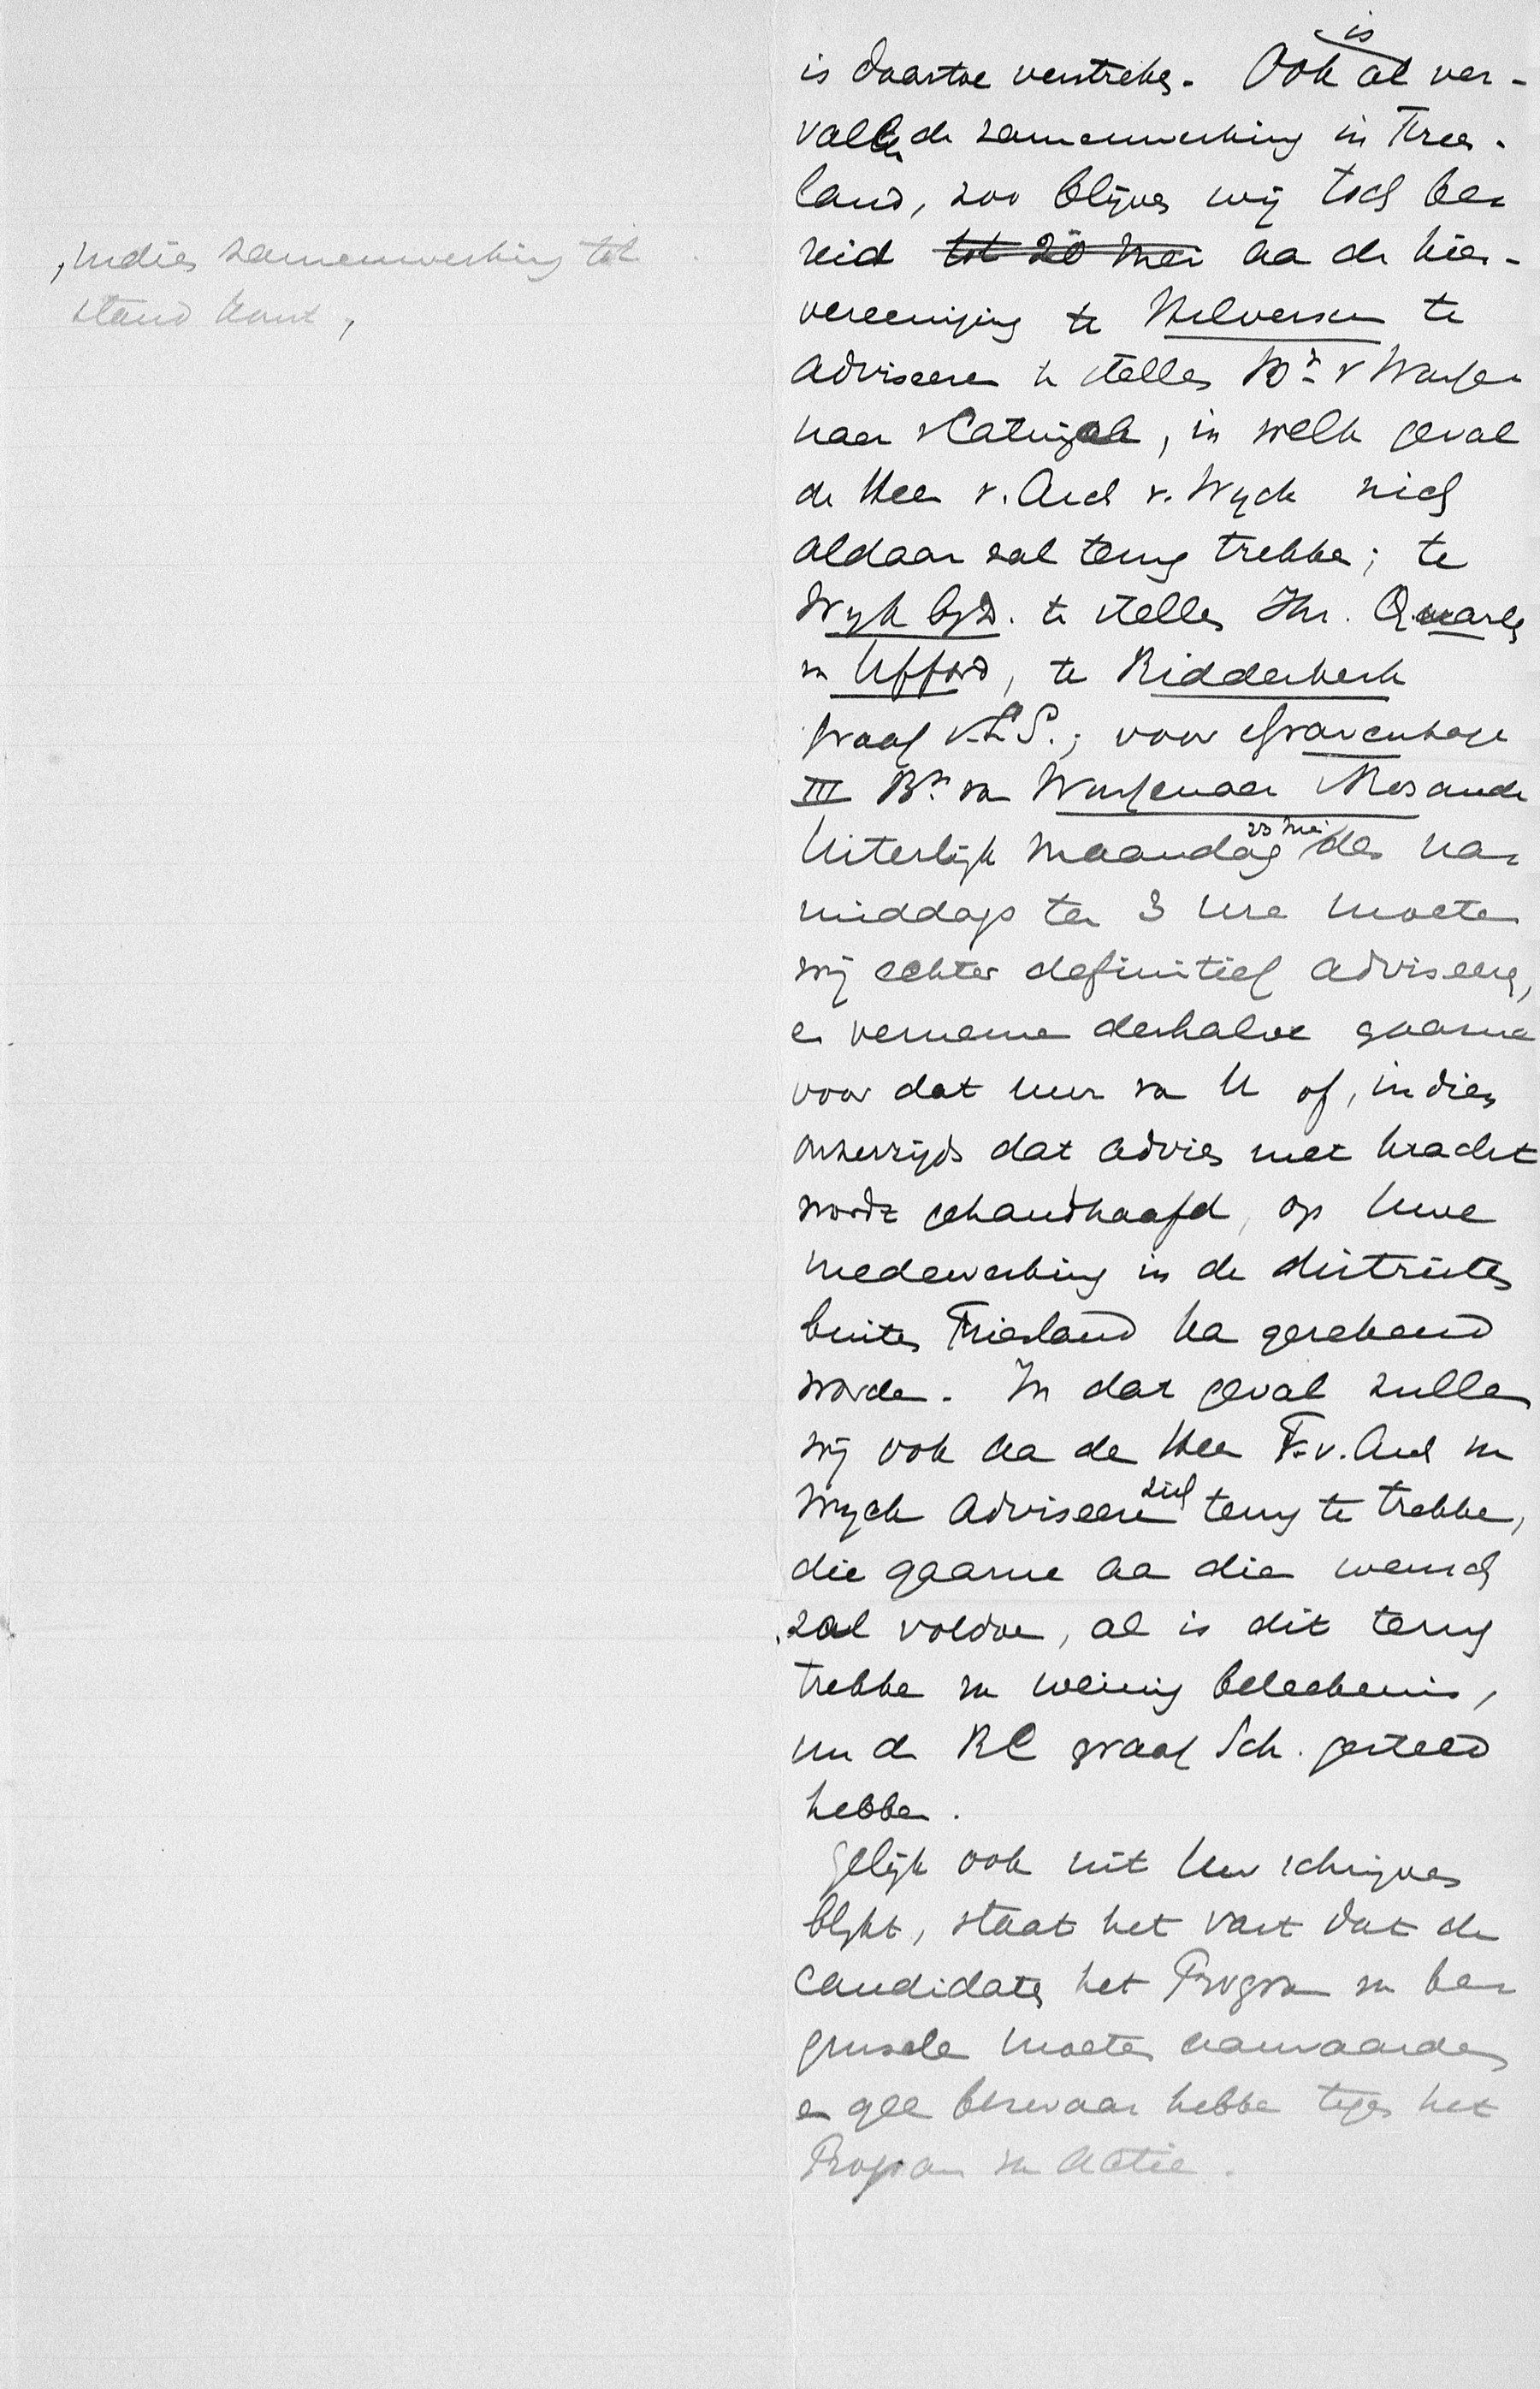 is daartoe verstreken. Ook is al ver-
vallen de samenwerking in Fries-
land, zoo blijven wij toch be-
reid tot 20 Mei aan de kies-
vereeniging te Hilversum te
adviseeren te stellen Bn v Wassen
naer v Catwijck, in welk geval
de Heer v. Asch v. Wyck zich
aldaar zal terug trekken; te
Wyk byD. te stellen Jhr. Quarles
van Ufford, te Ridderkerk
Graaf v.L.S.; voor sGravenhage
III Bn. van Wassenaer Rosande
Uiterlijk Maandag 23 Mei des na-
middags ten 3 ure moeten
wij echter definitief adviseeren,
en vernemen derhalve gaarne
voor dat uur van U of, indien
onzerzijds dat advies met kracht
wordt gehandhaafd, op Uwe
medewerking in de districten
buiten Friesland kan gerekend
worden. In dat geval zullen
wij ook aan de Heer v. Asch van
Wyck adviseeren zich terug te trekken,
die gaarne aan dien wensch
zal voldoen, al is dit terug
trekken van weinig beteekenis,
nu de RC graaf Sch. gesteld
hebben.
Gelijk ook uit Uw schrijven
blykt, staat het vast dat de
candidaten het Program van be-
ginselen moeten aanvaarden
en geen bezwaar hebben tegen het
Program van Actie.
, indien samenwerking tot
stand komt,